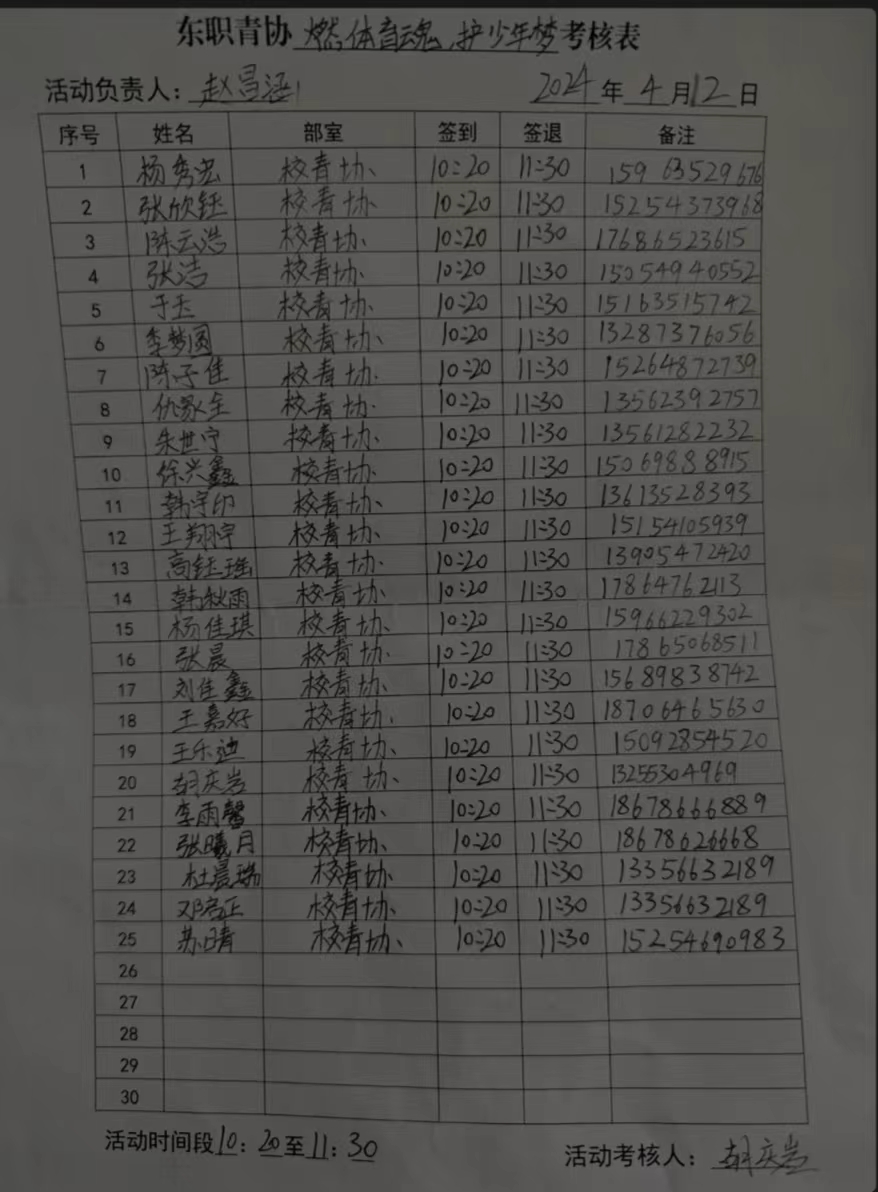 东职青协 燃体育魂,护少年梦 考核表
活动负责人: 赵昌涵 2024 年 4 月 12 日
序号 姓名 部室 签到 签退 备注
1 杨秀宏 校青协 10:20 11:30 15963529676
2 张欣钰 校青协 10:20 11:30 15254373968
3 陈云浩 校青协 10:20 11:30 17686523615
4 张洁 校青协 10:20 11:30 15054940552
5 于玉 校青协 10:20 11:30 15163515742
6 李梦圆 校青协 10:20 11:30 13287376056
7 陈子佳 校青协 10:20 11:30 15264872739
8 仇家全 校青协 10:20 11:30 13562392757
9 朱世宁 校青协 10:20 11:30 13561282232
10 徐兴鑫 校青协 10:20 11:30 15069888915
11 韩宇印 校青协 10:20 11:30 13613528393
12 王翔宇 校青协 10:20 11:30 15154105939
13 高钰瑶 校青协 10:20 11:30 13905472420
14 韩秋雨 校青协 10:20 11:30 17864762113
15 杨佳琪 校青协 10:20 11:30 15966229302
16 张晨 校青协 10:20 11:30 17865068511
17 刘佳鑫 校青协 10:20 11:30 15689838742
18 王嘉好 校青协 10:20 11:30 18706465630
19 王乐迪 校青协 10:20 11:30 15092854520
20 胡庆岩 校青协 10:20 11:30 13255304969
21 李雨馨 校青协 10:20 11:30 18678666889
22 张曦月 校青协 10:20 11:30 18678626668
23 杜晨瑞 校青协 10:20 11:30 13356632189
24 邓启正 校青协 10:20 11:30 13356632189
25 苏晴 校青协 10:20 11:30 15254690983
26
27
28
29
30
活动时间段 10:20 至 11:30 活动考核人: 胡庆岩